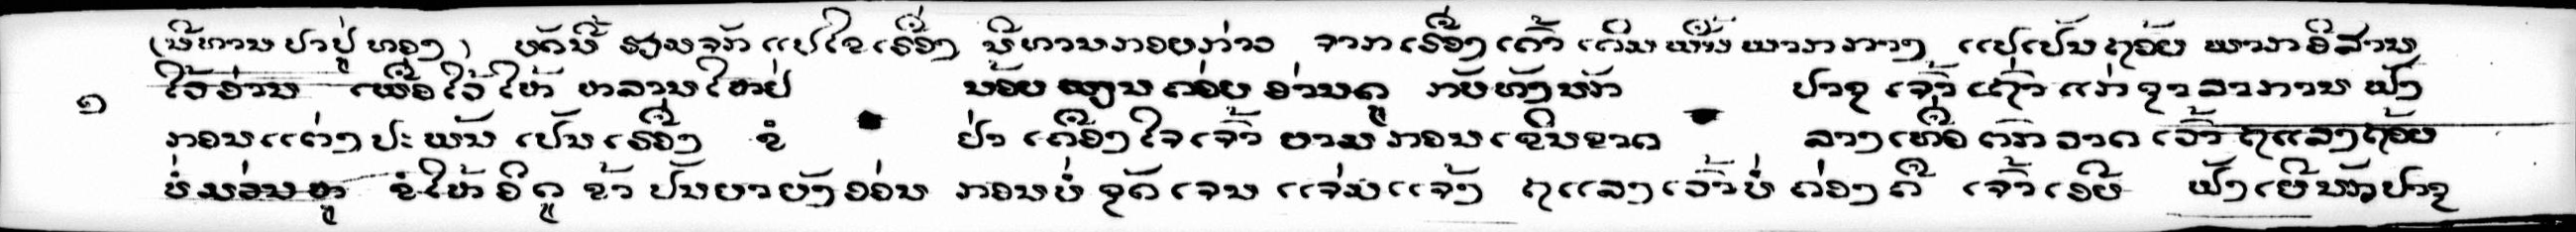 (ນິທານ ປາປູ່ຫລຽງ) ບດນີ້ ຮຽນຈກ ແປໃຈເຣື່ອງ ນິທານກອບກ່າວ ຈາກເຣື່ອງເຄົ້າ ເດີມພື້ນ ພາກກາງ ແປເປັນຖ້ອຍ ພາກອີສານ
໑ ໃຈ້ອ່ານ ເພື່ອໃຈ້ ໃຫ້ ຫລານໃຫຍ່ ນ້ອຍ ຮຽນຄ່ອຍ ອ່ານດູ ກັບທັງນັກ ປາຊ ເຈົ້າ ເຖົ້າ ແກ່ ຈາລາການ ຟັງ
ກອນແຕ່ງປະພັນ ເປັນເຣື່ອງ ຂໍ ຢ່າ ເຄືອງໃຈເຈົ້າ ຍາມກອນເຂີນຂາດ ລາງເທື່ອຕກວາດ ເວົ້າ ຖແລງຖ້ອຍ
ບໍ່ມ່ວນຫູ ຂໍໃຫ້ອີດູຂ້າ ປັນຍາຍັງອ່ອນ ກອນບໍ່ຈຸດເຈນ ແຈ່ມແຈ້ງ ຖແລງເວົ້າບໍ່ ຄ່ອງດີ ເຈົ້າເອີຍ ຟັງເຍີນັກປາຊ